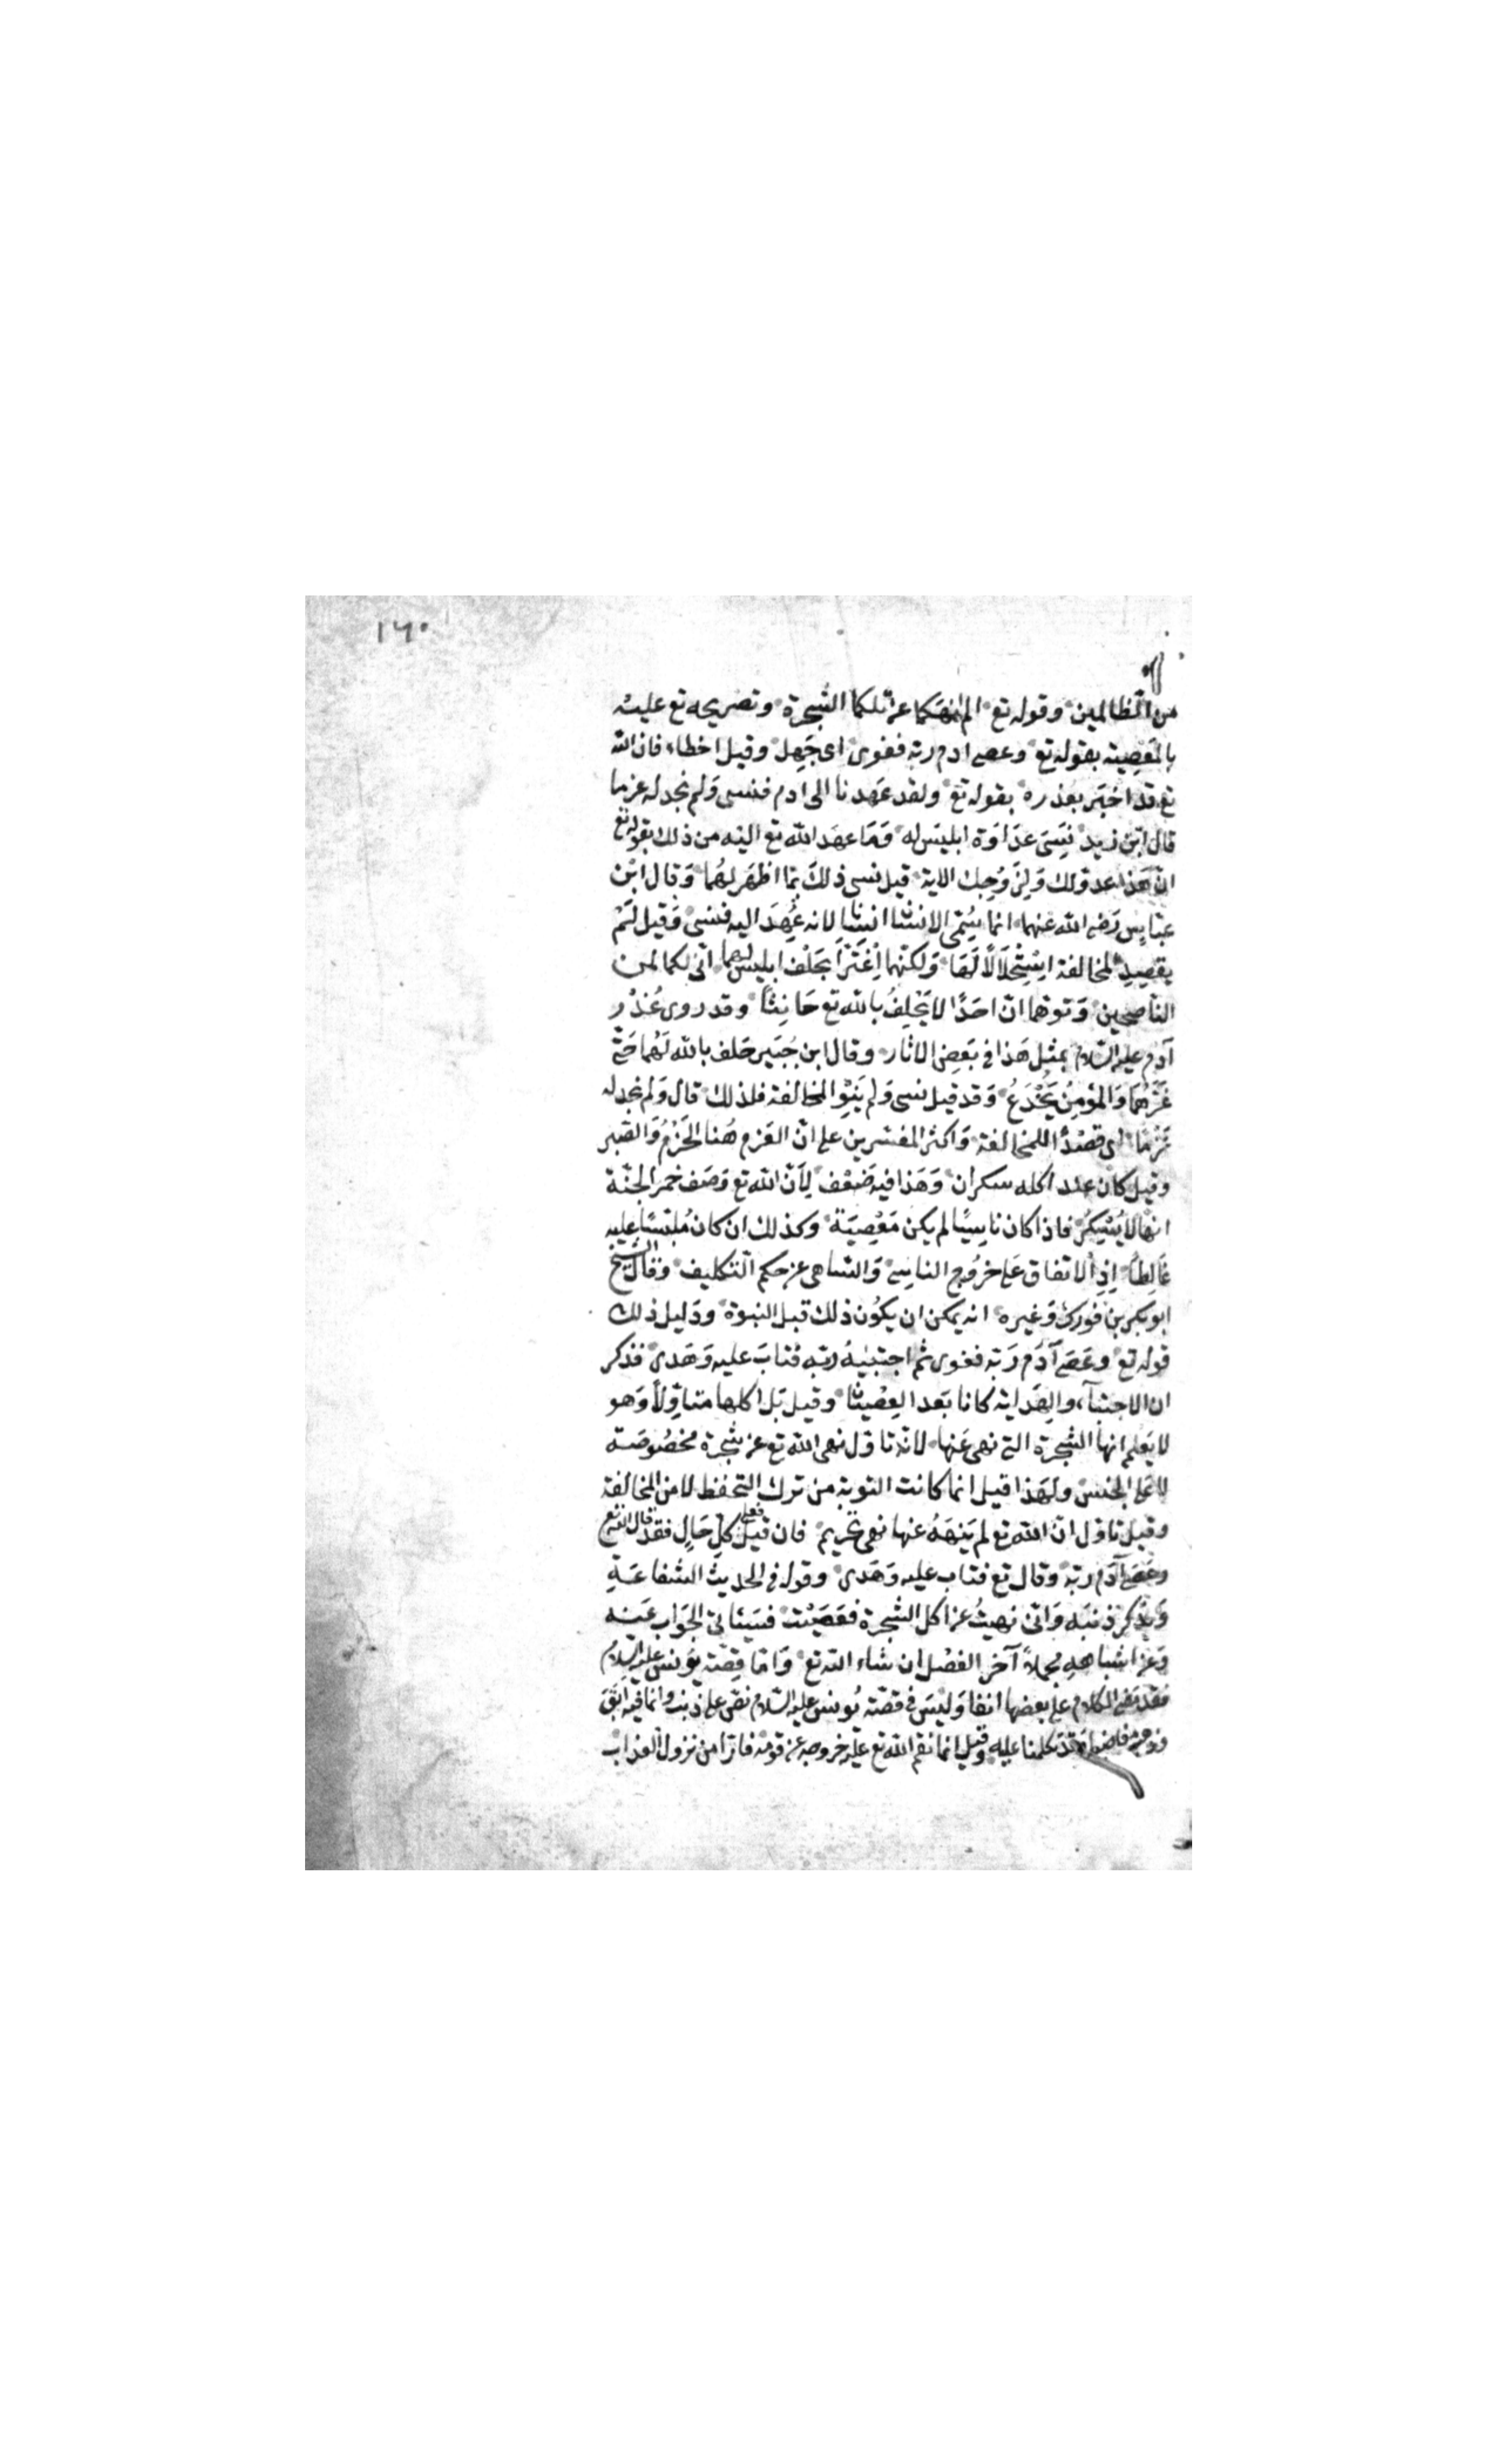 ١٦٠
من الظالمين وقوله تع الم انهكما عن تلكما الشجرة وتصريحه تع عليه
بالمعصية بقوله تع وعصى ادم ربه فغوى اى جَهِل وقيل اخطاء فان الله
تع قد اخبر بعذره بقوله تع ولقد عهدنا الى ادم فنسى ولم نجد له عزما
قال ابن زيد نَسِىَ عداوة ابليس له وما عهد الله تع اليه من ذلك بقوله تع
ان هذا عدو لك ولزوجك الاية قيل نسى ذلك بما اظهر لهما وقال ابن
عباس رضى الله عنهما انما سُمى الانسان انسانا لانه عُهِدَ اليه فنسى وقيل لم
يقصد المخالفة استحلالا لها ولكنهما اغترا بحلف ابليس لهما انى لكما لمن
الناصحين وتوهما ان احدًا لا يحلِفُ بالله تع حانثًا وقد روى عُذْر
آدم عليه السلام بمثل هذا فى بعض الاثار وقال ابن جُبَير حلف بالله لهما حتى
غَرَّهُما والمؤمِنُ يُخْدَعُ وقد قيل نسى ولم ينوِ المخالفة فلذلك قال ولم نجد له
عَزْمًا اى قصْدًا للمخالفة واكثر المفسرين على ان العَزم هُنا الحَزْمُ والصبر
وقيل كان عند اكله سكران وهذا فيه ضعْف لِأن الله تع وصف خمر الجنة
انها لا يُسْكِرُ فاذا كان ناسِيًا لم يكن مَعْصِيَة وكذلك ان كان مُلبّسًا عليه
غالِطًا اِذِ الاتفاق على خروج الناسِى والساهى عن حكم التكليف وقال الشيخ
ابو بكر بن فورك وغيره انه يمكن ان يكون ذلك قبل النبوة ودليل ذلك
قوله تع وعصى آدم ربه فغوى ثم اجتبيهُ ربه فتابَ عليه وهدى فذكر
ان الاجتبآء والهداية كانا بعد العِصْيان وقيل بل اكلها متاوِّلاً وهو
لا يعلم انها الشجرة التى نهى عَنها لانه تاول نهى الله تع عن شجرة مخصُوصَة
لا على الجنس ولهذا قيل انما كانت التوبة من ترك التحفظ لا من المخالفة
وقيل تاول ان الله تع لم يَنهَهُ عنها نهى تحريم فان قيل فعلى كل حَالٍ فقد قال الله تع
وعصى آدم ربه وقال تع فتاب عليه وهَدى وقوله فى الحديث الشفاعَةِ
ويذكر ذنبه وانى نهيتُ عن اكل الشجرة فعَصَيْت فسَيَأتى الجَواب عَنه
وعن اشباهه مجملاً آخر الفصْل ان شاء الله تع وَاما قِصّة يُونس عليه السلام
فقد مضى الكلام على بعضها انفا وليسَ فى قصّة يُونس عليه السّلام نصّ على ذنب وانما فيه ابَقَ
وذهب مغاضبا وقد تكلمنا عليه وقيل انما نقم الله تع عليه خروجه عن قومه فارًا من نزول العذاب